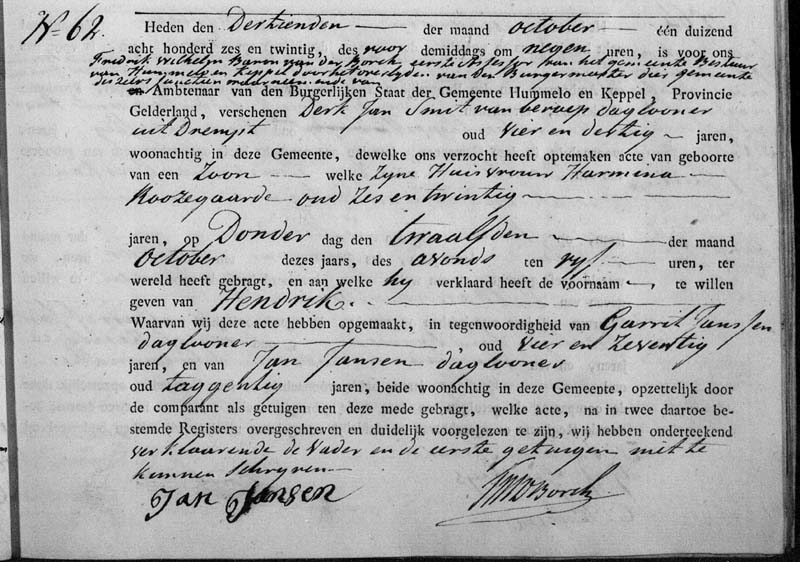 No 62.
Heden den Dertienden der maand october één duizend
acht honderd zes en twintig, des voor demiddags om negen uren, is voor ons
Fredrik Wilhelm Baron van der Borch, eerste Assessor van het gemeente Bestuur
van Hummelo en Keppel door het overlyden van den Burgemeester dier gemeente
deszelfs functien waarnemende van
en Ambtenaar van den Burgerlijken Staat der Gemeente Hummelo en Keppel, Provincie
Gelderland, verschenen Derk Jan Smit van beroep daglooner
uit Drempt oud vier en dertig jaren,
woonachtig in deze Gemeente, dewelke ons verzocht heeft optemaken acte van geboorte
van een Zoon welke Zyne Huisvrouw Harmena
Roozegaarde oud Zes en twintig
jaren, op Donder dag den twaalfden der maand
October dezes jaars, des avonds ten vyf uren, ter
wereld heeft gebragt, en aan welke hy verklaard heeft de voornaam te willen
geven van Hendrik.
Waarvan wij deze acte hebben opgemaakt, in tegenwoordigheid van Garrit Janssen
daglooner, oud vier en Zeventig
jaren, en van Jan Jansen daglooner
oud taggentig jaren, beide woonachtig in deze Gemeente, opzettelijk door
de comparant als getuigen ten deze mede gebragt, welke acte, na in twee daartoe be-
stemde Registers overgeschreven en duidelijk voorgelezen te zijn, wij hebben onderteekend
verklaarende de Vader en de eerste getuigen niet te
kunnen schryven
Jan Jansen
FWvBorch